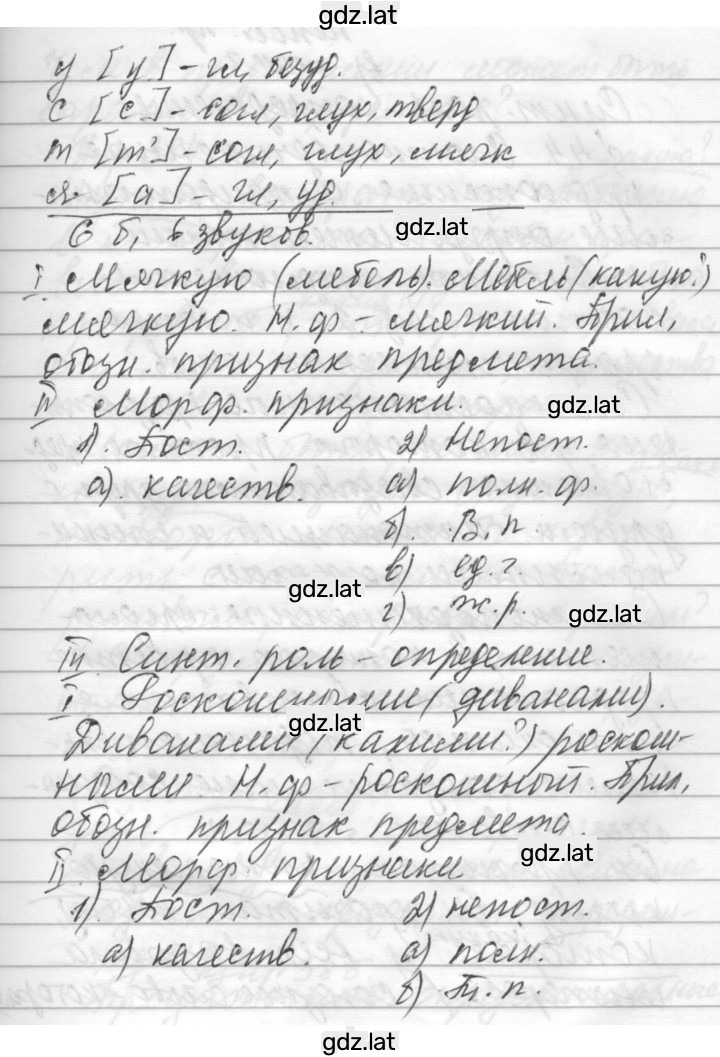 gdz.lat
у [у] - гл, безуд.
с [с] - согл, глух, тверд
т [т'] - согл, глух, мягк
я [а] - гл, уд.
6 б, 6 звуков.
gdz.lat
I Мягкую (мебель). Мебель (какую?)
мягкую. Н. ф - мягкий. Прил,
обозн. признак предмета.
II Морф. признаки.
gdz.lat
1). Пост. 2) Непост.
а). качеств. а) полн. ф.
б). В. п
gdz.lat
в) ед. ч
г) ж. р.
gdz.lat
III. Синт. роль - определение.
I Роскошными (диванами).
gdz.lat
Диванами (какими?) роскош-
ными. Н. ф - роскошный. Прил,
обозн. признак предмета.
gdz.lat
II. Морф. признаки
1). Пост. 2) непост.
а) качеств. а) полн.
б) Т. п.
gdz.lat